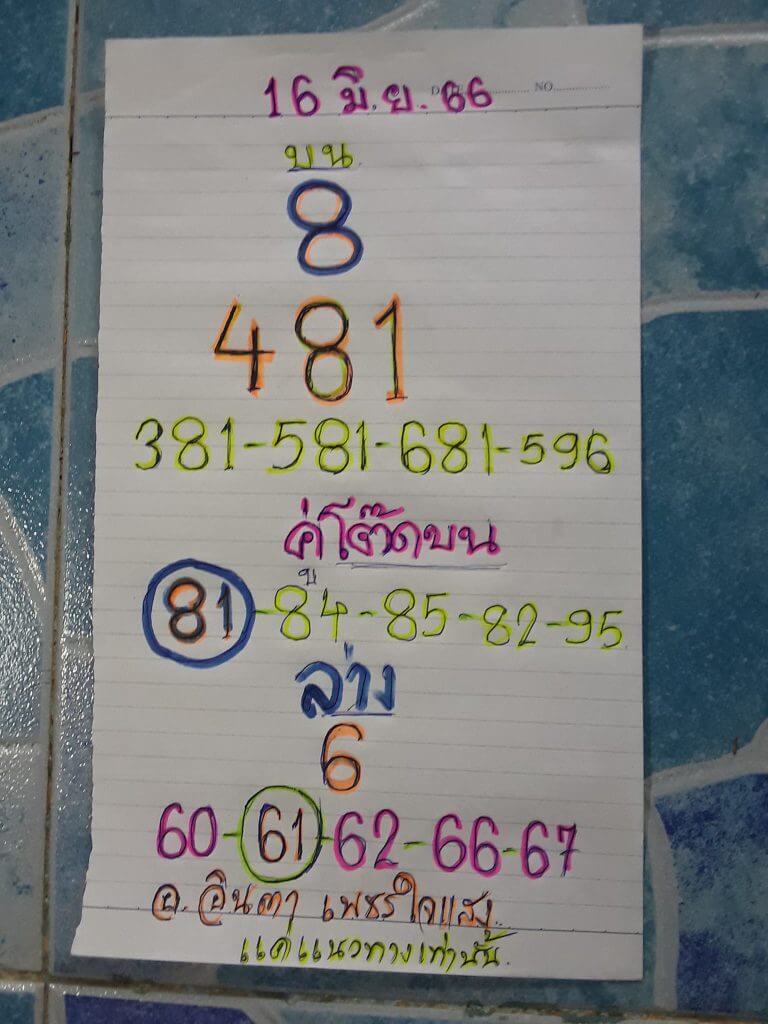 16 มิ.ย. 66
NO
บน
8
481
381-581-681-596
คู่โต๊ดบน
81-84-85-82-95
ล่าง
6
60-61-62-66-67
อ. อินตา เพชรใจแสง.
แค่แนวทางเท่านั้น.